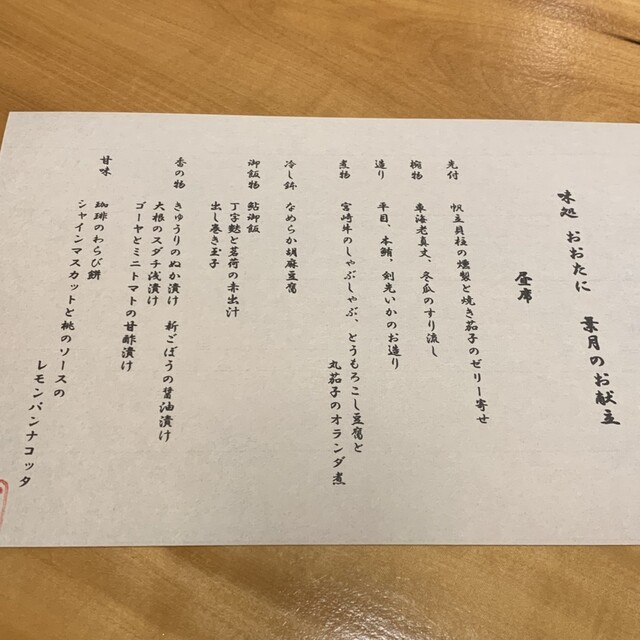 味処 おおたに 葉月のお献立
昼席
先付 帆立貝柱の燻製と焼き茄子のゼリー寄せ
椀物 車海老真丈、冬瓜のすり流し
造り 平目、本鮪、剣先いかのお造り
煮物 宮崎牛のしゃぶしゃぶ、とうもろこし豆腐と
丸茄子のオランダ煮
冷し鉢 なめらか胡麻豆腐
御飯物 鮎御飯
丁字麩と茗荷の赤出汁
出し巻き玉子
香の物 きゅうりのぬか漬け 新ごぼうの醤油漬け
大根のスダチ浅漬け
ゴーヤとミニトマトの甘酢漬け
甘味 珈琲のわらび餅
シャインマスカットと桃のソースの
レモンパンナコッタ